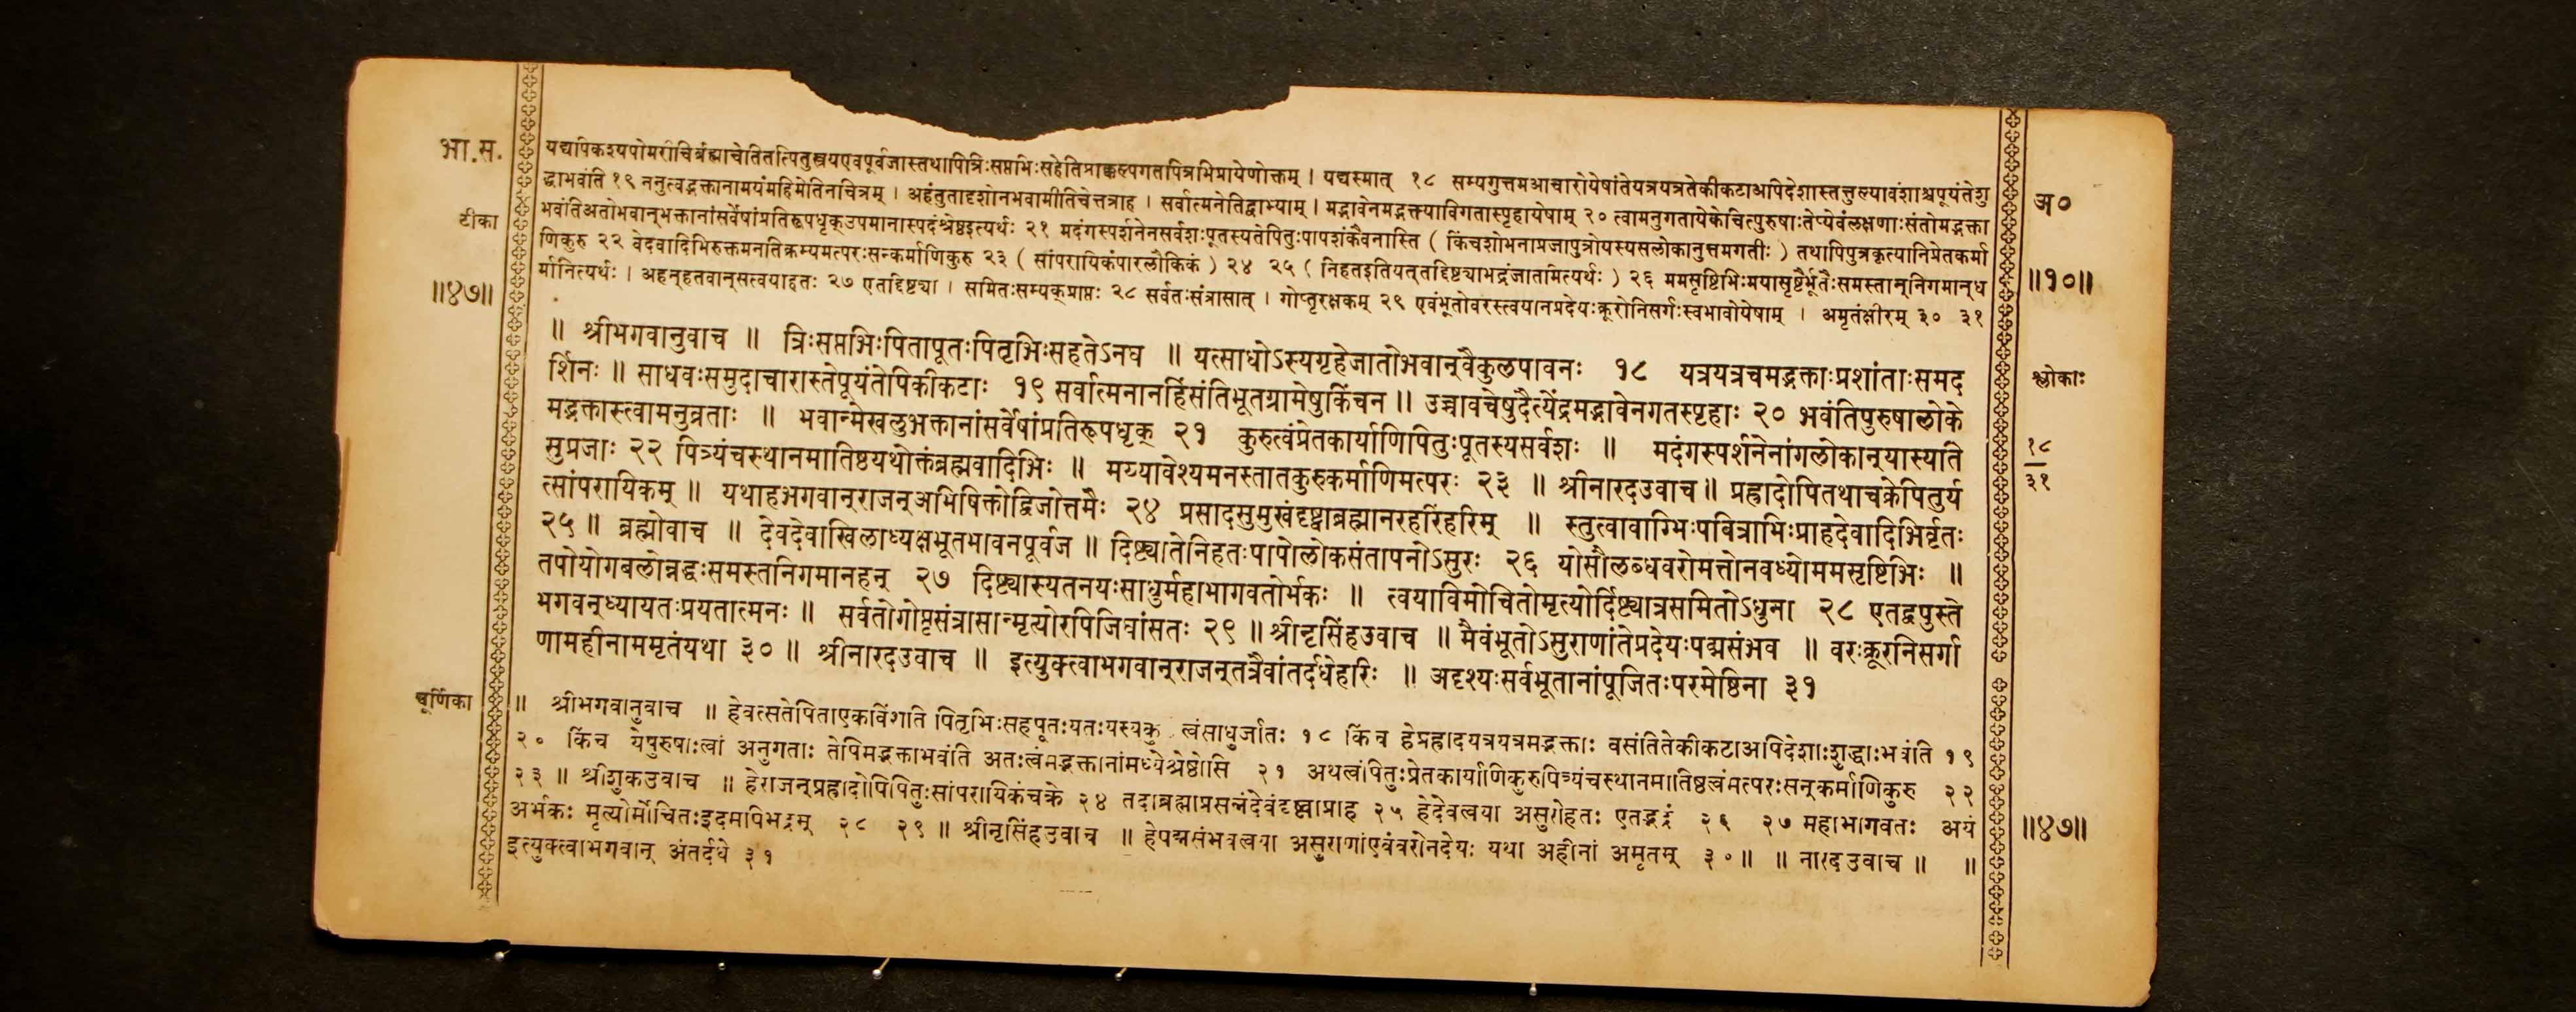 भा.स.
यद्यपिकश्यपोमरीचिर्ब्रह्माचेतितत्पितुस्त्रयएवपूर्वजास्तथापित्रिःसप्तभिःसहेतिप्राक्कल्पगतपित्रभिप्रायेणोक्तम् । यद्यस्मात् १८ सम्यगुत्तमआचारोयेषांतेयत्रयत्रतेकीकटाअपिदेशास्तत्तुल्यावंशाश्चपूयंतेशु
द्धाभवंति १९ ननुत्वद्भक्तानामयंमहिमेतिनचित्रम् । अहंतुतादृशोनभवामीतिचेत्तत्राह । सर्वात्मनेतिद्वाभ्याम् । मद्भावेनमद्भक्त्याविगतास्पृहायेषाम् २० त्वामनुगतायेकेचित्पुरुषाःतेप्येवंलक्षणाःसंतोमद्भक्ता
टीका
भवंतिअतोभवान्भक्तानांसर्वेषांप्रतिरूपधृक्उपमानास्पदंश्रेष्ठइत्यर्थः २१ मदंगस्पर्शनेनसर्वशःपूतस्यतेपितुःपापशंकैवनास्ति ( किंचशोभनाप्रजापुत्रोयस्यसलोकानुत्तमगतीः ) तथापिपुत्रकृत्यानिप्रेतकर्मा
णिकुरु २२ वेदवादिभिरुक्तमनतिक्रम्यमत्परःसन्कर्माणिकुरु २३ ( सांपरायिकंपारलौकिकं ) २४ २५ ( निहतइतियत्तद्दिष्ट्याभद्रंजातमित्यर्थः ) २६ ममसृष्टिभिःमयासृष्टैर्भूतैःसमस्तान्निगमान्ध
र्मानित्यर्थः । अहन्हतवान्सत्वयाहतः २७ एतद्दिष्ट्या । समितःसम्यक्प्राप्तः २८ सर्वतःसंत्रासात् । गोप्तृरक्षकम् २९ एवंभूतोवरस्त्वयानप्रदेयःक्रूरोनिसर्गःस्वभावोयेषाम् । अमृतंक्षीरम् ३० ३१
॥४७॥
अ०
॥१०॥
॥ श्रीभगवानुवाच ॥ त्रिःसप्तभिःपितापूतःपितृभिःसहतेऽनघ ॥ यत्साधोऽस्यगृहेजातोभवान्वैकुलपावनः १८ यत्रयत्रचमद्भक्ताःप्रशांताःसमद
र्शिनः ॥ साधवःसमुदाचारास्तेपूयंतेपिकीकटाः १९ सर्वात्मनानहिंसंतिभूतग्रामेषुकिंचन ॥ उच्चावचेषुदैत्येंद्रमद्भावेनगतस्पृहाः २० भवंतिपुरुषालोके
मद्भक्तास्त्वामनुव्रताः ॥ भवान्मेखलुभक्तानांसर्वेषांप्रतिरूपधृक् २१ कुरुत्वंप्रेतकार्याणिपितुःपूतस्यसर्वशः ॥ मदंगस्पर्शनेनांगलोकान्यास्यति
सुप्रजाः २२ पित्र्यंचस्थानमातिष्ठयथोक्तंब्रह्मवादिभिः ॥ मय्यावेश्यमनस्तातकुरुकर्माणिमत्परः २३ ॥ श्रीनारदउवाच ॥ प्रह्रादोपितथाचक्रेपितुर्य
त्सांपरायिकम् ॥ यथाहभगवान्राजन्अभिषिक्तोद्विजोत्तमैः २४ प्रसादसुमुखंदृष्ट्वाब्रह्मानरहरिंहरिम् ॥ स्तुत्वावाग्भिःपवित्राभिःप्राहदेवादिभिर्वृतः
२५ ॥ ब्रह्मोवाच ॥ देवदेवाखिलाध्यक्षभूतभावनपूर्वज ॥ दिष्ट्यातेनिहतःपापोलोकसंतापनोऽसुरः २६ योसौलब्धवरोमत्तोनवध्योममसृष्टिभिः ॥
तपोयोगबलोन्नद्धःसमस्तनिगमानहन् २७ दिष्ट्यास्यतनयःसाधुर्महाभागवतोर्भकः ॥ त्वयाविमोचितोमृत्योर्दिष्ट्यात्रसमितोऽधुना २८ एतद्वपुस्ते
भगवन्ध्यायतःप्रयतात्मनः ॥ सर्वतोगोप्तृसंत्रासान्मृत्योरपिजिघांसतः २९ ॥ श्रीनृसिंहउवाच ॥ मैवंभूतोऽसुराणांतेप्रदेयःपद्मसंभव ॥ वरःक्रूरनिसर्गा
णामहीनाममृतंयथा ३० ॥ श्रीनारदउवाच ॥ इत्युक्त्वाभगवान्राजन्तत्रैवांतर्दधेहरिः ॥ अदृश्यःसर्वभूतानांपूजितःपरमेष्ठिना ३१
श्लोकाः
१८
३१
चूर्णिका
॥ श्रीभगवानुवाच ॥ हेवत्सतेपिताएकविंशति पितृभिःसहपूतःयतःयस्यकु त्वंसाधुर्जातः १८ किंच हेप्रह्रादयत्रयत्रमद्भक्ताः वसंतितेकीकटाअपिदेशाःशुद्धाःभवंति १९
२० किंच येपुरुषाःत्वां अनुगताः तेपिमद्भक्ताभवंति अतःत्वंमद्भक्तानांमध्येश्रेष्ठोसि २१ अथत्वंपितुःप्रेतकार्याणिकुरुपित्र्यंचस्थानमातिष्ठत्वंमत्परःसन्कर्माणिकुरु २२
२३ ॥ श्रीशुकउवाच ॥ हेराजन्प्रह्रादोपिपितुःसांपरायिकंचक्रे २४ तदाब्रह्माप्रसन्नंदेवंदृष्ट्वाप्राह २५ हेदेवत्वया असुरोहतः एतद्भद्रं २६ २७ महाभागवतः अयं
अर्भकः मृत्योर्मोचितःइदमपिभद्रम् २८ २९ ॥ श्रीनृसिंहउवाच ॥ हेपद्मसंभवत्वया असुराणांएवंवरोनदेयः यथा अहीनां अमृतम् ३०॥ ॥ नारदउवाच ॥ ॥
इत्युक्त्वाभगवान् अंतर्दधे ३१
॥४७॥